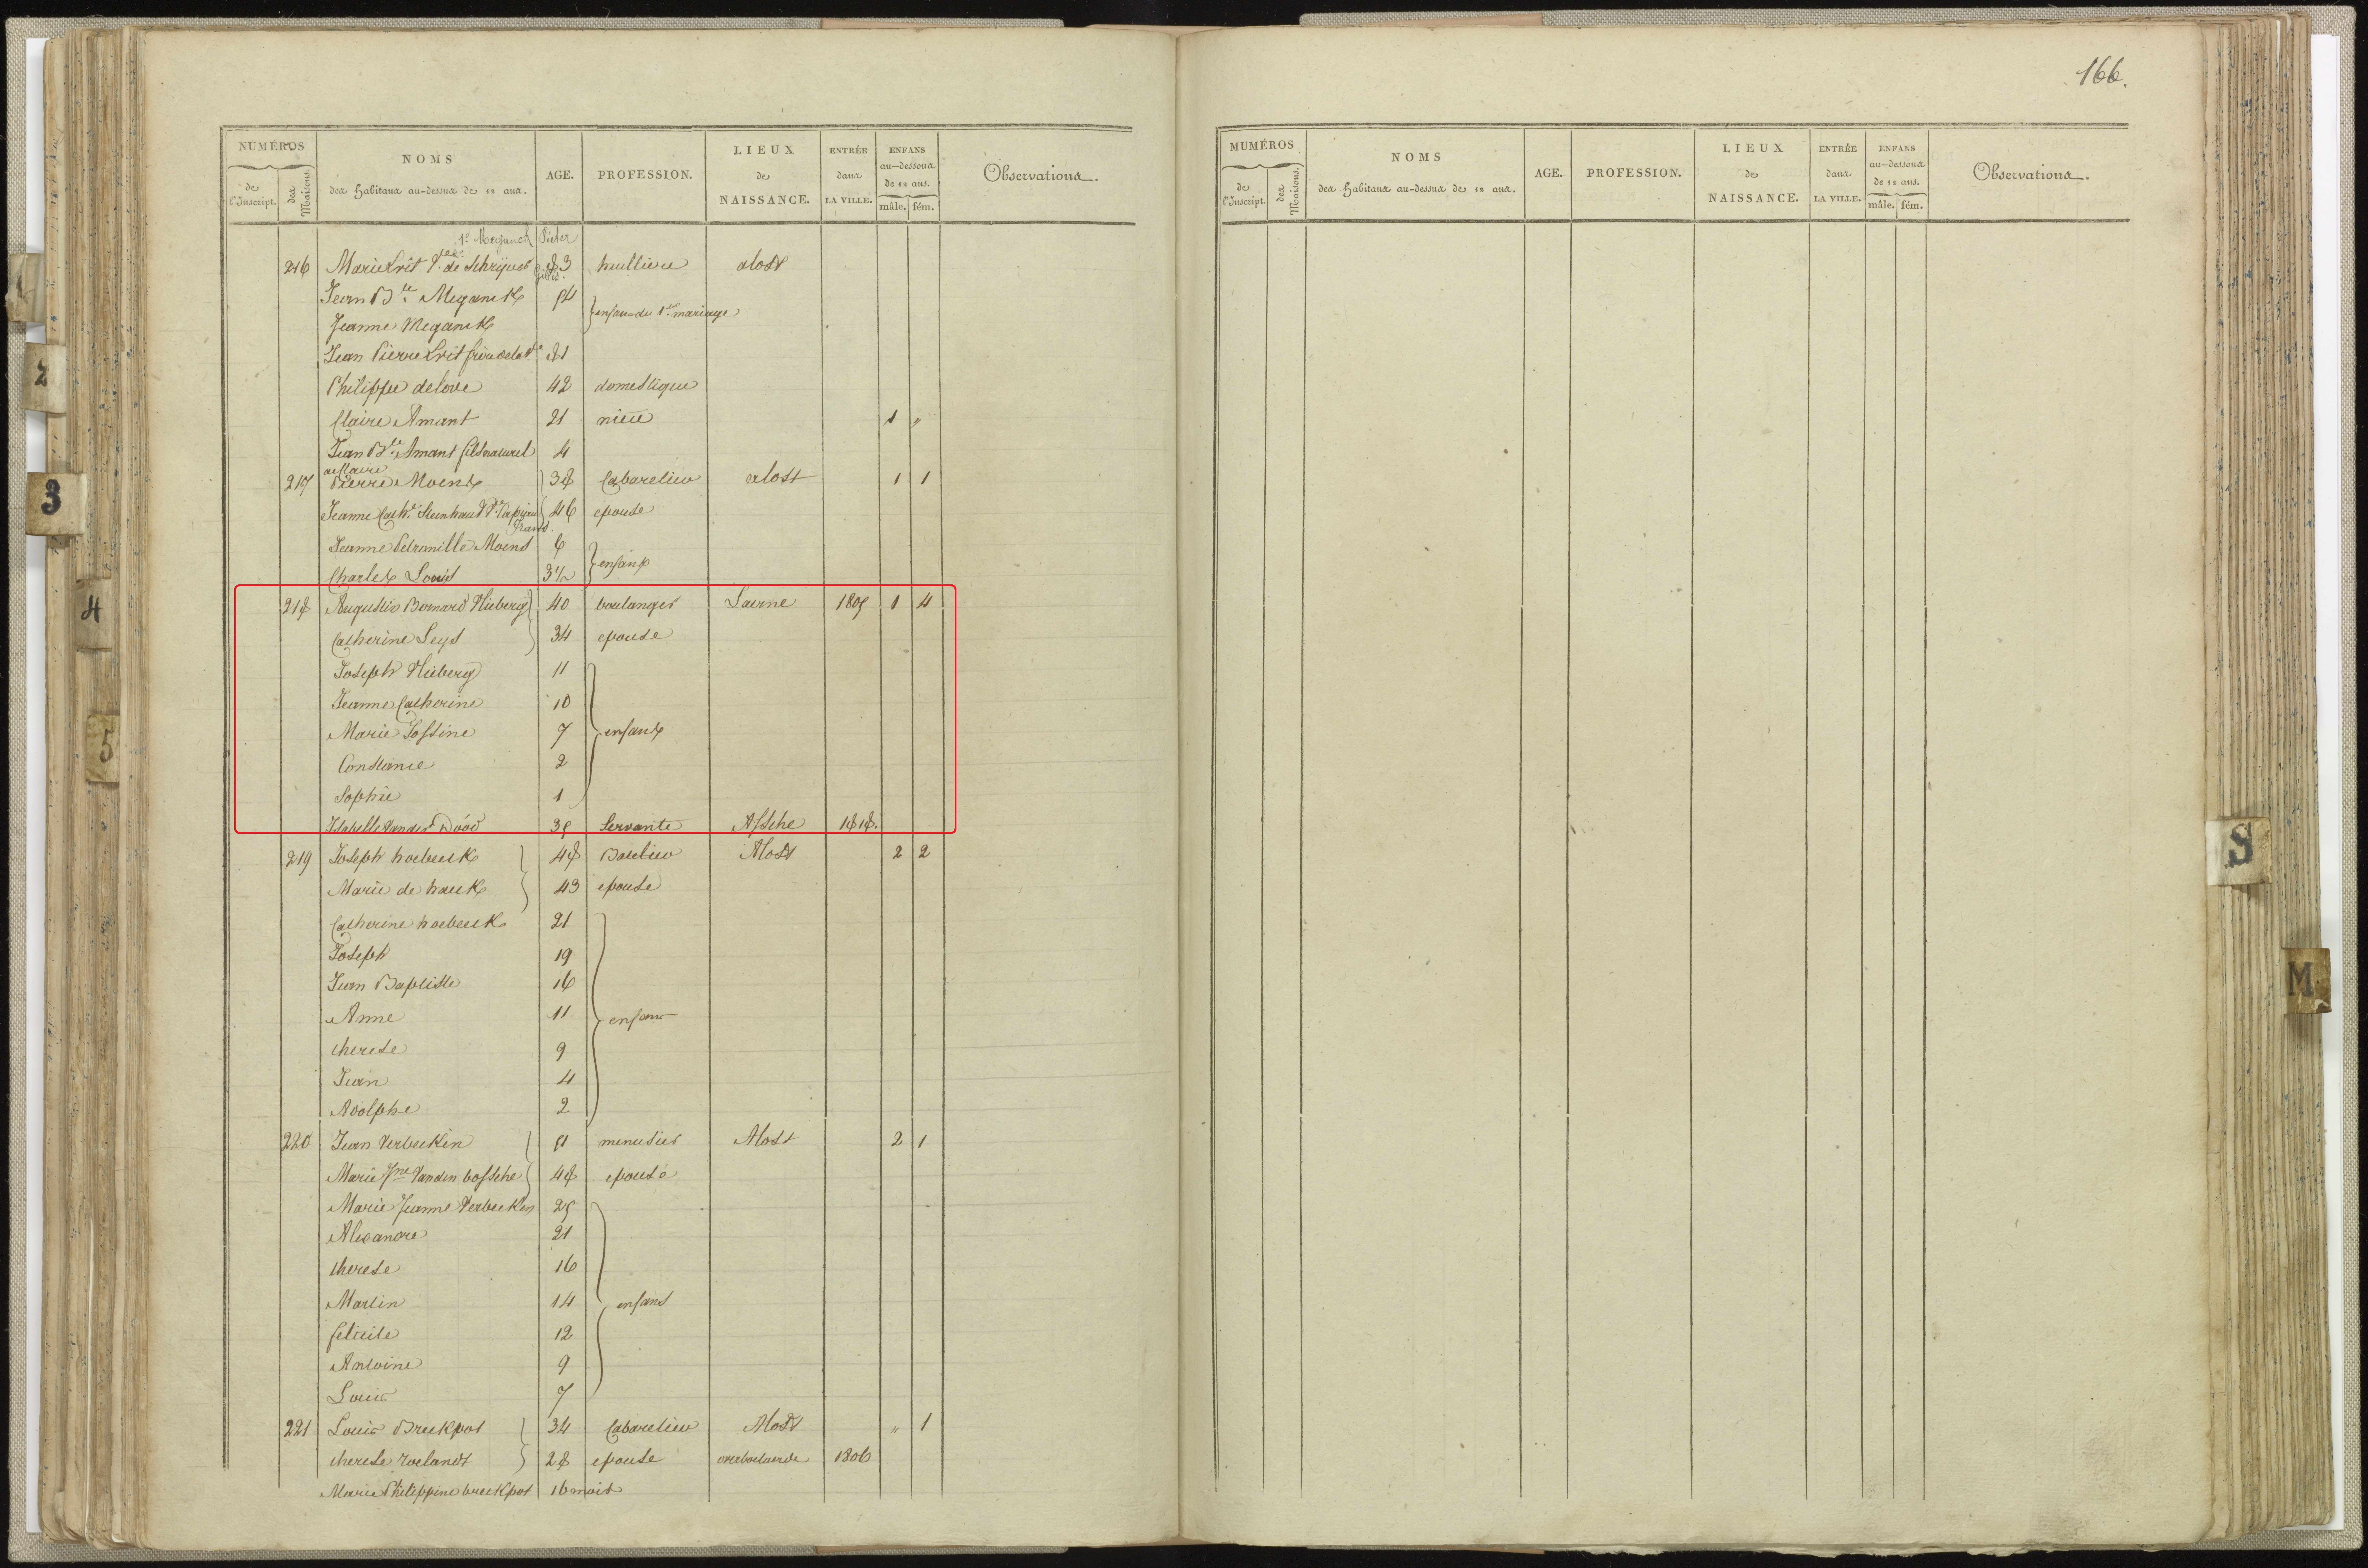 166.
NUMÉROS
de l'Inscript. des Maisons.
NOMS
des Habitans au-dessus de 12 ans.
AGE.
PROFESSION.
LIEUX de NAISSANCE.
ENTRÉE dans LA VILLE.
ENFANS au-dessous de 12 ans.
mâle. fém.
Observations.
MUMÉROS
de l'Inscript. des Maisons.
NOMS
des Habitans au-dessus de 12 ans.
AGE.
PROFESSION.
LIEUX de NAISSANCE.
ENTRÉE dans LA VILLE.
ENFANS au-dessous de 12 ans.
mâle. fém.
Observations.
1° Meganck Pieter
216 Marie Livit Vve de Schryver 83 huilliere alost
Jean Bte Meganck 54
Jeanne Meganck enfans du 1er mariage
Jean Pierre Livit frère de la Ve 81
Philippe delove 42 domestique
Claire Amant 21 niece 1 "
Jean Bte Amant fils naturel 4
de Claire
217 Pierre Moens 38 Cabaretier alost 1 1
Jeanne Cathe 46 epouse
Jeanne Petronille Moens 6
Charles Louis 3 1/2 enfans
218 Augustin Bernard Vlieberg 40 boulanger Laerne 1805 1 4
Catherine Leys 34 epouse
Joseph Vlieberg 11
Jeanne Catherine 10
Marie Jossine 7 enfans
Constance 2
Sophie 1
Isabelle Vander Dood 35 Servante Assche 1818.
219 Joseph hoebeeck 48 Batelier Alost 2 2
Marie de hauck 43 epouse
Catherine hoebeeck 21
Joseph 19
Jean Baptiste 16
Anne 11 enfans
therese 9
Jean 4
Adolphe 2
220 Jean Verbecken 51 menusier Alost 2 1
Marie Jne Vanden bossche 48 epouse
Marie Jeanne Verbecken 25
Alexandre 21
therese 16
Martin 14 enfans
felicite 12
Antoine 9
Louis 7
221 Louis Breckpot 34 Cabaretier Alost " 1
therese roelandt 28 epouse overboelaerde 1806
Marie Philippine breckpot 16 mois
1
2
3
4
5
S
M